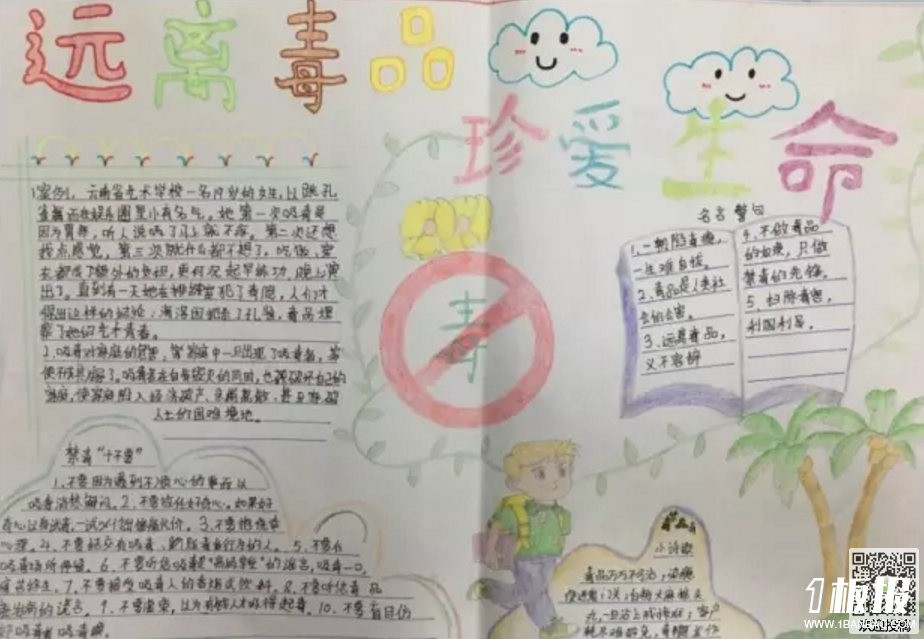 远离毒品
珍爱生命
1.案例1、云南省艺术学校一名19岁的女生，以跳孔
雀舞而在娱乐圈里小有名气。她第一次吸毒是
因为胃疼，听人说吸了马上就不疼。第二次还想
找点感觉，第三次就什么都不想了。吃饭、穿
衣都成了额外的负担，更何况起早练功，晚上演
出了。直到有一天她在排练室犯了毒瘾，人们才
得出这样的结论：海洛因
毒品埋
葬了她的艺术青春。
2.吸毒对家庭的危害，家庭中一旦出现了吸毒者，家
便不成其家了。吸毒者在自我毁灭的同时，也破坏自己的
家庭，使家庭陷入经济破产、亲属离散、甚至
人亡的困难境地。
禁毒“十不要”
1、不要因为遇到不顺心的事而以
吸毒消愁解闷。2、不要放任好奇心。如果好
奇心以身试毒，一试
付出惨痛代价。3、不要抱侥幸
心理。4、不要结交有吸毒、贩毒行为的人。5、不要在
吸毒场所停留。6、不要听信吸毒是“高级享受”的谣言，吸毒一口，
痛苦终生。7、不要接受吸毒人的香烟或饮料。8、不要听信毒品
能治病的谎言。9、不要虚荣，以为有钱人才吸得起毒。10、不要盲目仿
毒
名言警句
1、一朝陷毒瘾，
一生难自拔。
2、毒品是人类社
会的公害。
3、远离毒品，
义不容辞
4、不做毒品
的奴隶，只做
禁毒的先锋。
5、扫除毒害，
利国利民。
小诗歌
毒品万万不可沾，染瘾
1板报
WWW.1BANBAO.COM
欢迎投稿